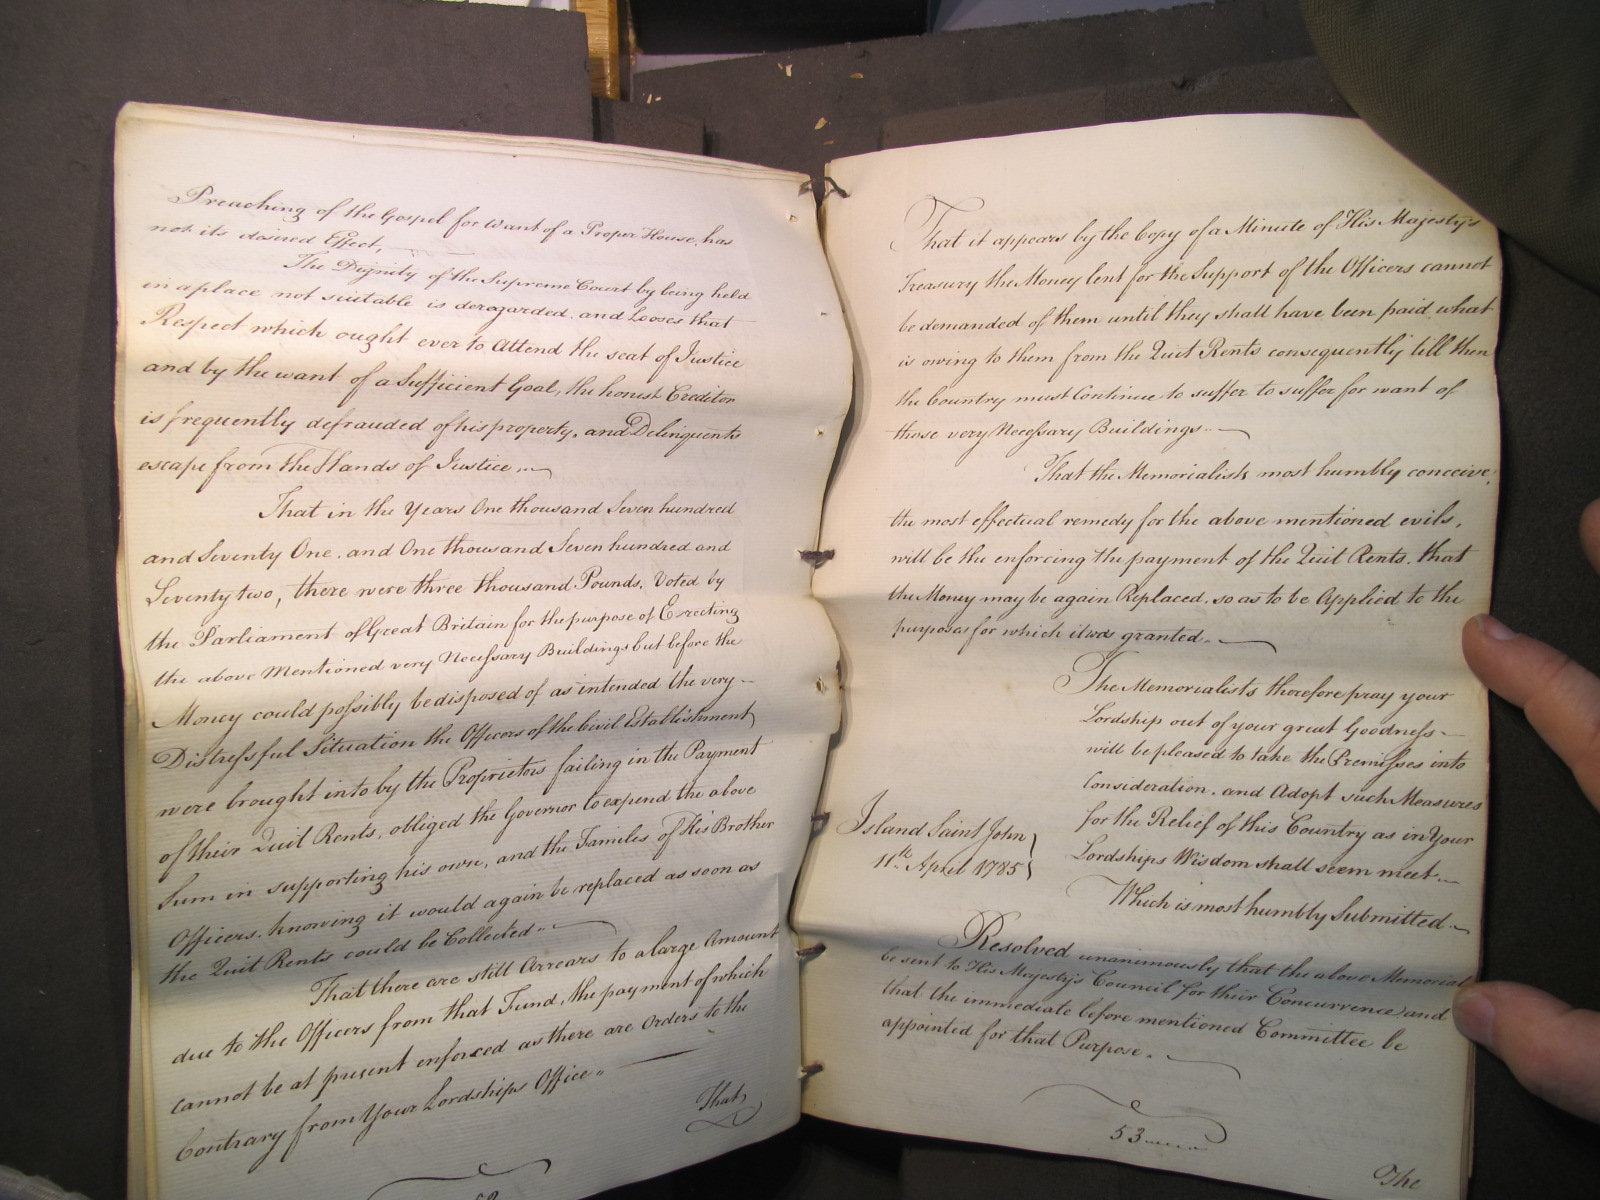 Preaching of the Gospel for want of a Proper House, has
not its desired Effect.
The Dignity of the Supreme Court by being held
in a place not suitable is derogarded. and Looses that
Respect which ought ever to Attend the seat of Justice
and by the want of a Sufficient Goal, the honest Creditor
is frequently defrauded of his property, and Delinquents
escape from the Hands of Justice.
That in the Years One thousand Seven hundred
and Seventy One. and One thousand Seven hundred and
Seventy two, there were three thousand Pounds. Voted by
the Parliament of Great Britain for the purpose of Erecting
the above Mentioned very Necessary Buildings but before the
Money could possibly be disposed of as intended the very
Distressful Situation the Officers of the Civil Establishment
were brought into by the Proprietors failing in the Payment
of their Quit Rents, obliged the Governor to expend the above
Sum in supporting his own, and the Familes of His Brother
Officers. knowing it would again be replaced as soon as
the Quit Rents could be Collected.
That there are still Arrears to a large Amount
due to the Officers from that Fund, the payment of which
cannot be at present enforced as there are Orders to the
Contrary from Your Lordships Office.
That
That it appears by the Copy of a Minute of His Majesty's
Treasury the Money lent for the Support of the Officers cannot
be demanded of them until they shall have been paid what
is owing to them from the Quit Rents consequently till then
the Country must Continue to suffer to suffer for want of
those very Necessary Buildings.
That the Memorialists most humbly conceive,
the most effectual remedy for the above mentioned evils,
will be the enforcing the payment of the Quit Rents. that
the Money may be again Replaced, so as to be Applied to the
purposes for which it was granted.
The Memorialists therefore pray your
Lordship out of your great Goodness
will be pleased to take the Premisses into
Consideration. and Adopt such Measures
for the Relief of this Country as in Your
Lordships Wisdom shall seem meet
Island Saint John
11th. April 1785
Which is most humbly Submitted
Resolved unanimously that the above Memorial
be sent to His Majesty's Council for their Concurrence and
that the immediate before mentioned Committee be
appointed for that Purpose.
53
The